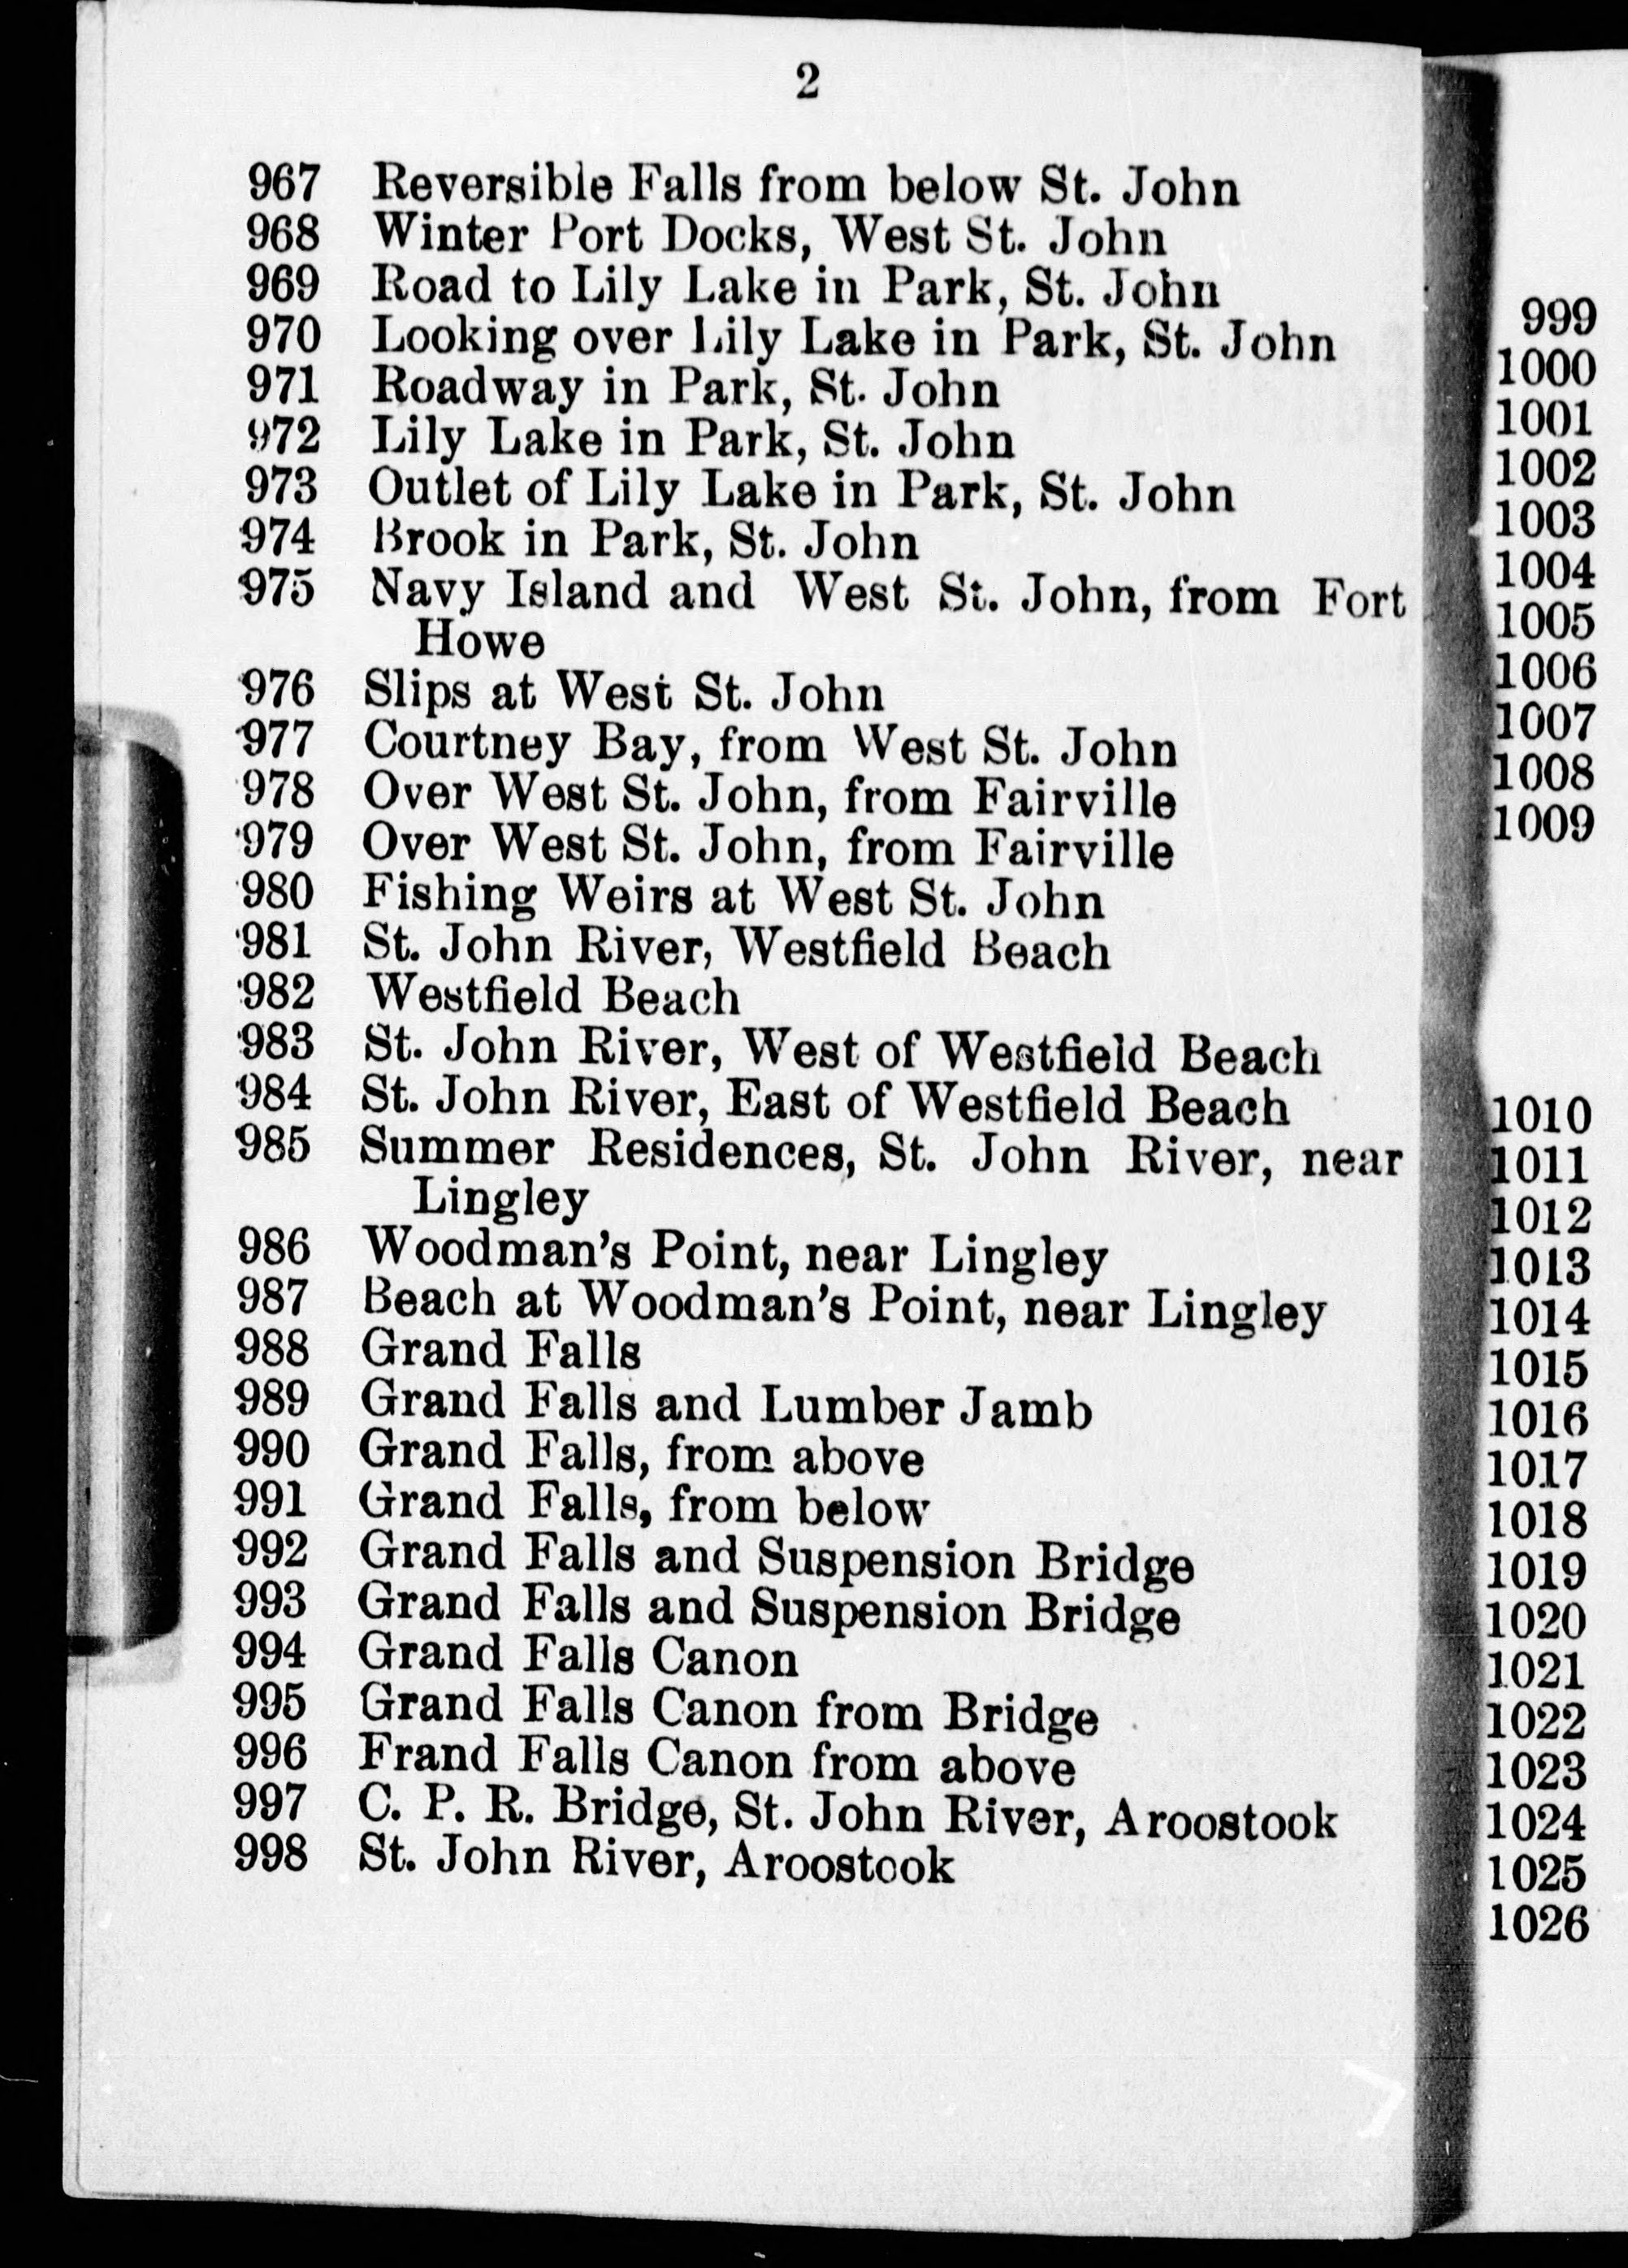 2
967 Reversible Falls from below St. John
968 Winter Port Docks, West St. John
969 Road to Lily Lake in Park, St. John
970 Looking over Lily Lake in Park, St. John
971 Roadway in Park, St. John
972 Lily Lake in Park, St. John
973 Outlet of Lily Lake in Park, St. John
974 Brook in Park, St. John
975 Navy Island and West St. John, from Fort
Howe
976 Slips at West St. John
977 Courtney Bay, from West St. John
978 Over West St. John, from Fairville
979 Over West St. John, from Fairville
980 Fishing Weirs at West St. John
981 St. John River, Westfield Beach
982 Westfield Beach
983 St. John River, West of Westfield Beach
984 St. John River, East of Westfield Beach
985 Summer Residences, St. John River, near
Lingley
986 Woodman's Point, near Lingley
987 Beach at Woodman's Point, near Lingley
988 Grand Falls
989 Grand Falls and Lumber Jamb
990 Grand Falls, from above
991 Grand Falls, from below
992 Grand Falls and Suspension Bridge
993 Grand Falls and Suspension Bridge
994 Grand Falls Canon
995 Grand Falls Canon from Bridge
996 Frand Falls Canon from above
997 C. P. R. Bridge, St. John River, Aroostook
998 St. John River, Aroostook
999
1000
1001
1002
1003
1004
1005
1006
1007
1008
1009
1010
1011
1012
1013
1014
1015
1016
1017
1018
1019
1020
1021
1022
1023
1024
1025
1026